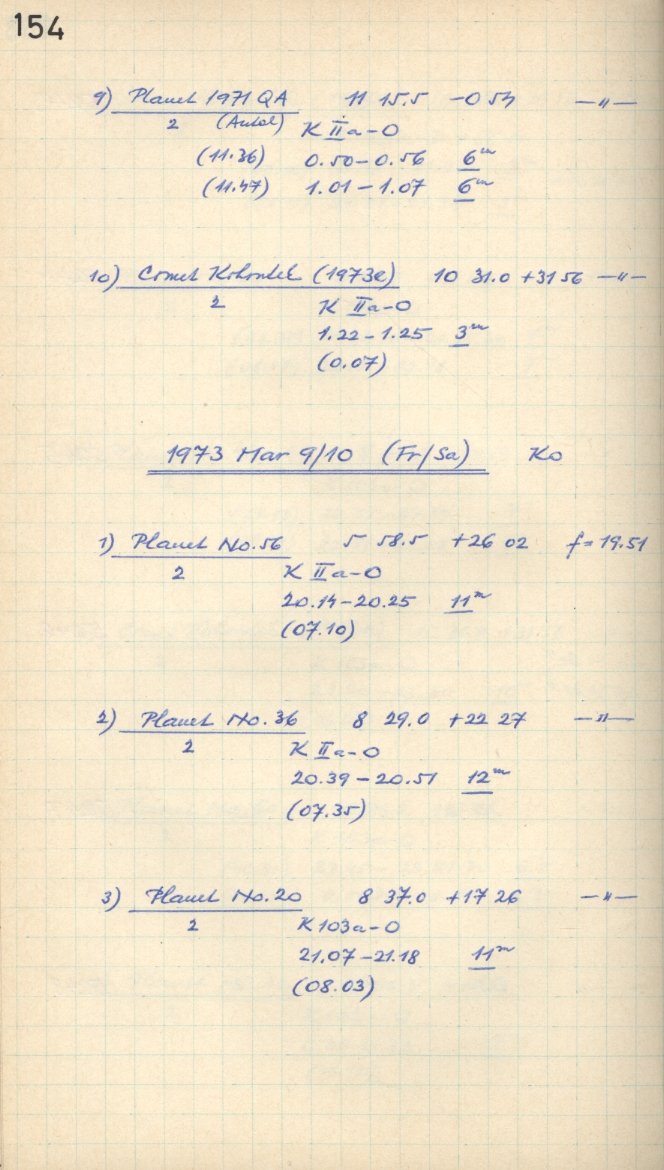 154
9) Planet 1971 QA 11 15.5 -0 54 —"—
2 (Antal) K IIa-O
(11.36) 0.50-0.56 6m
(11.47) 1.01-1.07 6m
10) Comet Kohoutek (1973e) 10 31.0 +31 56 —"—
2 K IIa-O
1.22-1.25 3m
(0.07)
1973 Mar 9/10 (Fr/Sa) Ko
1) Planet No. 56 5 58.5 +26 02 f=19.51
2 K IIa-O
20.14-20.25 11m
(07.10)
2) Planet No. 36 8 29.0 +22 27 —"—
2 K IIa-O
20.39-20.51 12m
(07.35)
3) Planet No. 20 8 37.0 +17 26 —"—
2 K 103a-O
21.07-21.18 11m
(08.03)